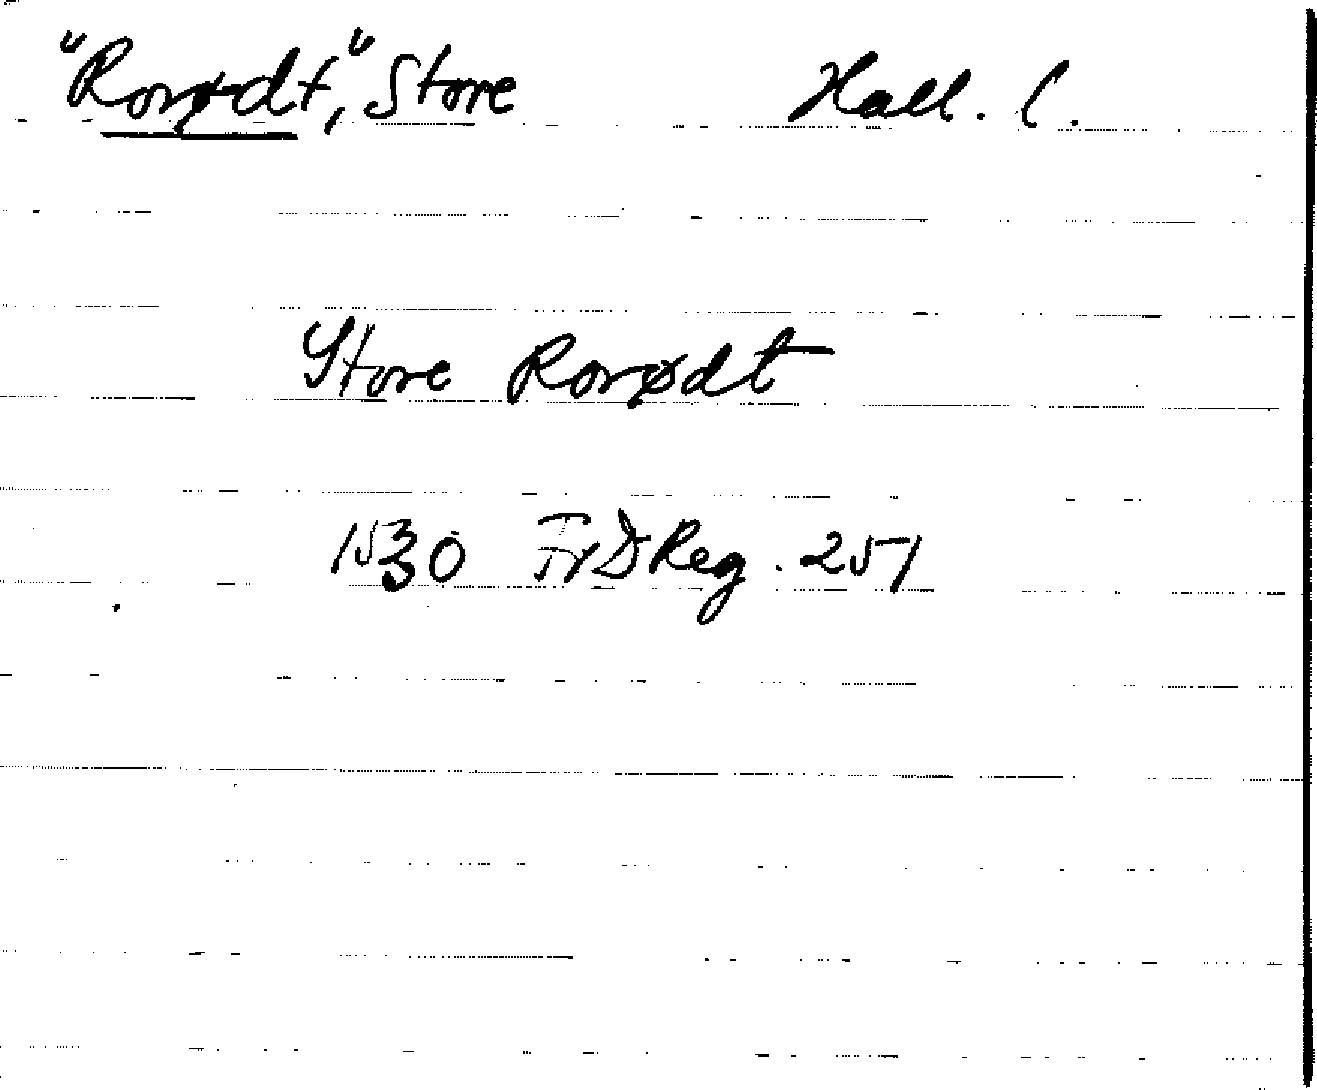 "Rorødt," Store Hall. l.
Store Rorødt
1530 Fr D Reg. 251